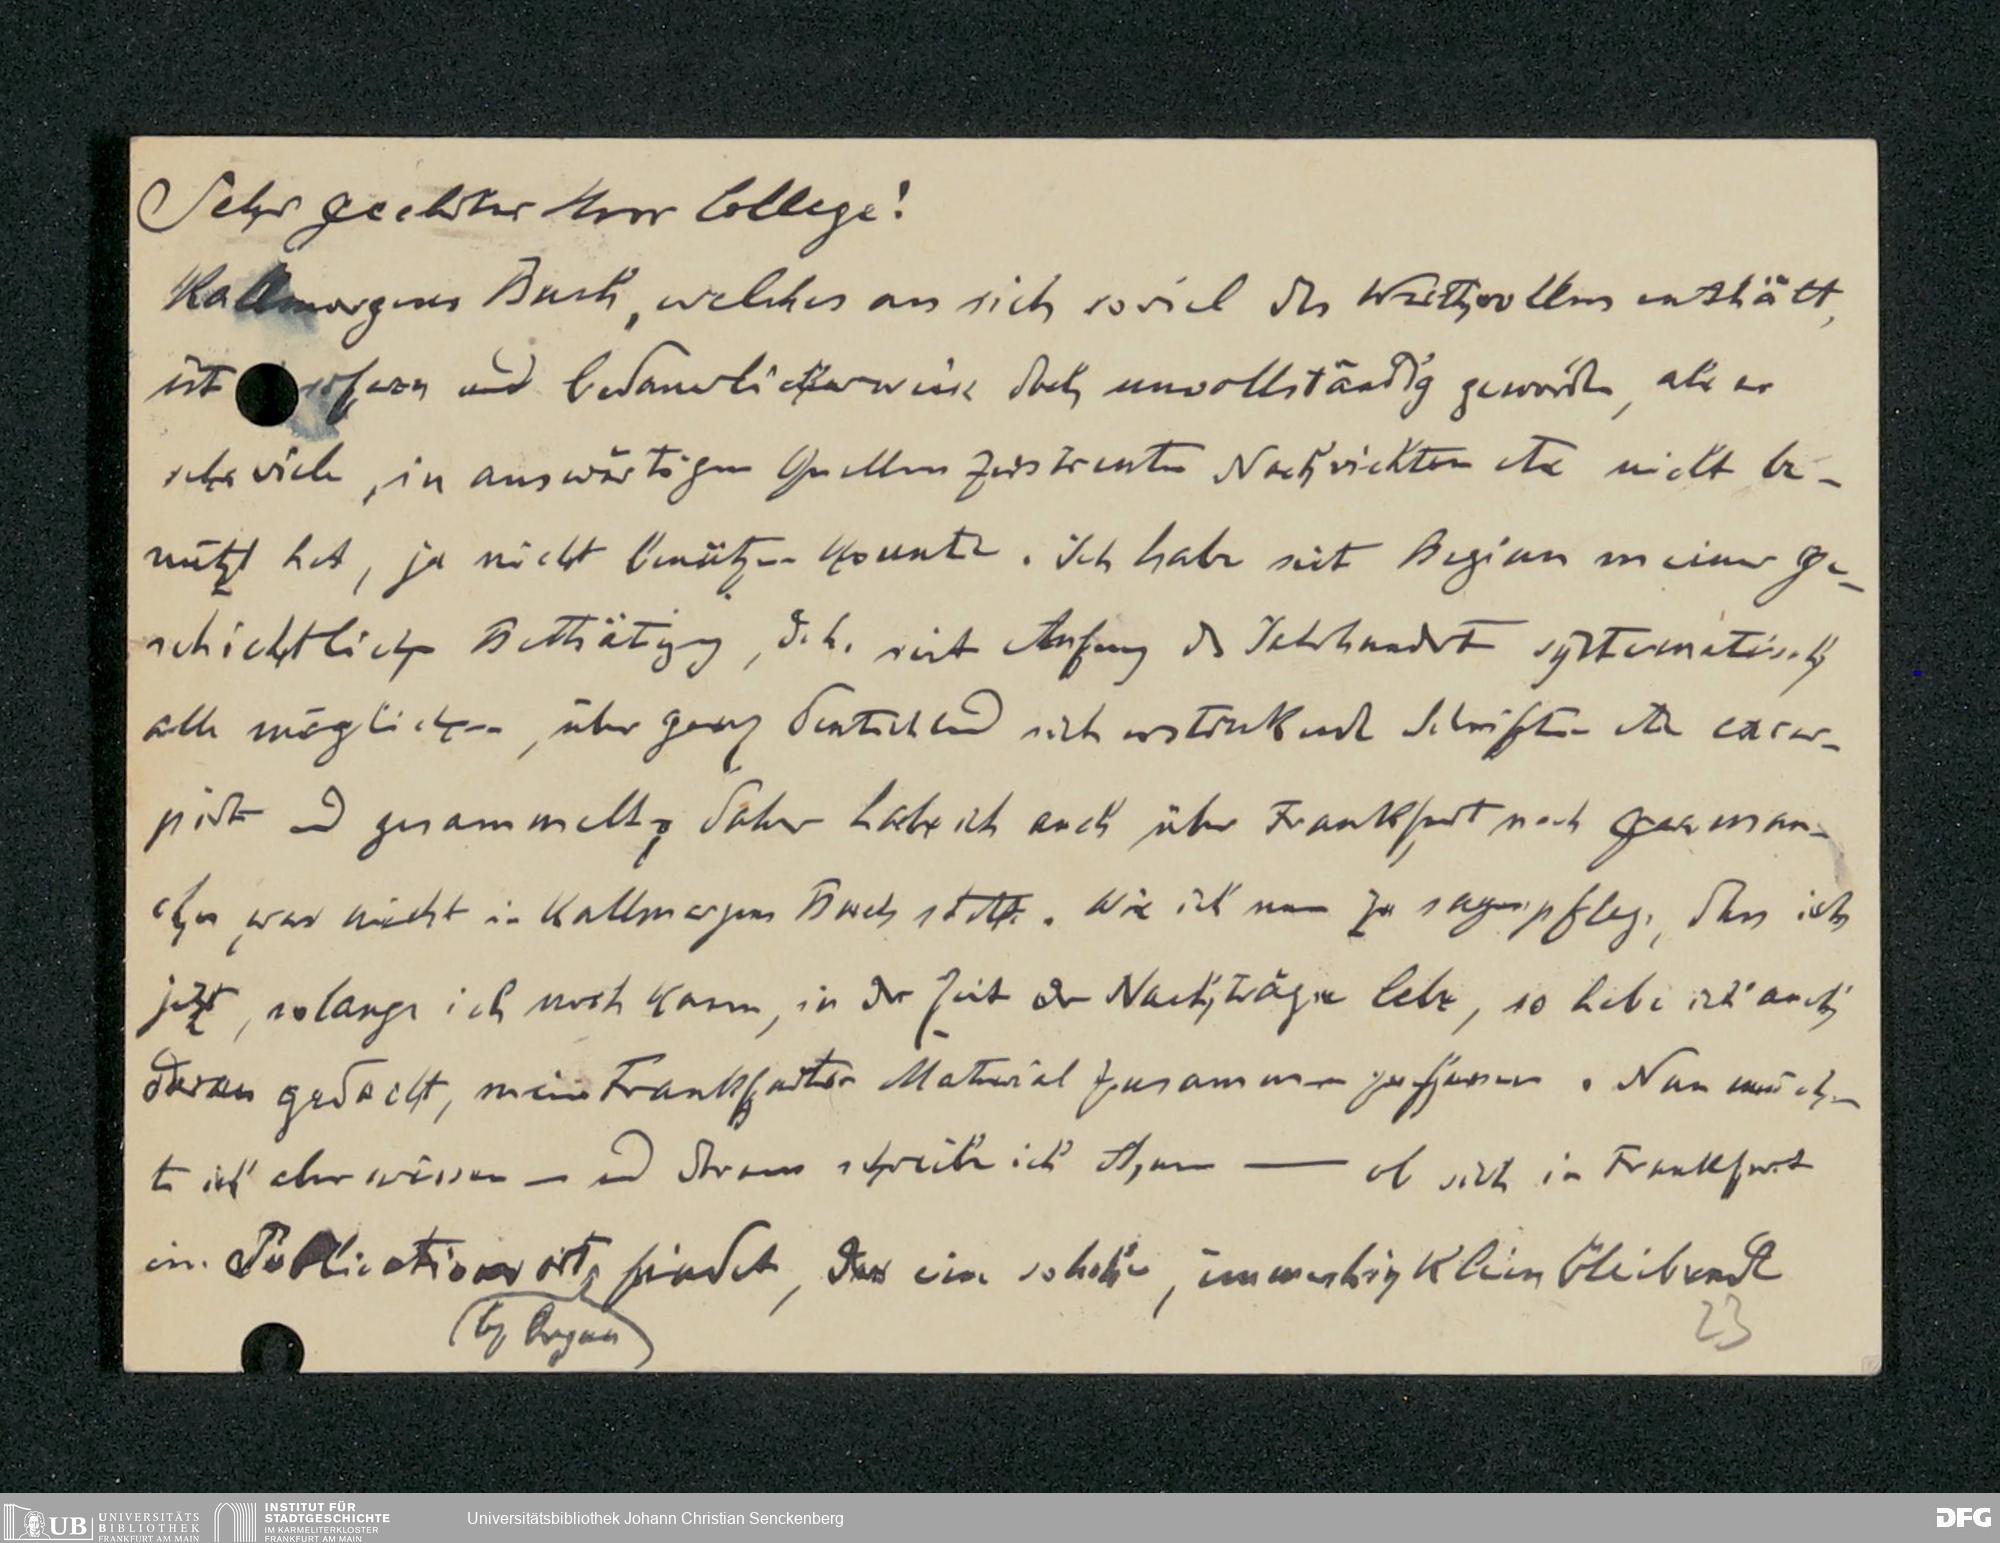 Sehr geehrter Herr College!
Kallmorgens Buch, welches an sich soviel des Werthvollen enthält,
ist sofern und bedauerlicherweise doch unvollständig geworden, als er
sehr viele, in auswärtigen Quellen zerstreute Nachrichten etc nicht be-
nützt hat, ja nicht benützen konnte. Ich habe seit Beginn meiner ge-
schichtlichen Bethätigung, d.h. seit Anfang des Jahrhunderts systematisch
alle möglichen, über ganz Deutschland sich erstreckende Schriften etc excer-
pirt und gesammelt, daher habe ich auch über Frankfurt noch gar man-
ches, was nicht in Kallmorgens Buch steht. Wie ich nun zu sagen pflege, dass ich
jetzt, solange ich noch kann, in der Zeit der Nachträge lebe, so habe ich auch
daran gedacht, mein Frankfurter Material zusammen zu fassen. Nun möch-
te ich aber wissen – und darum schreibe ich Ihnen — ob sich in Frankfurt
ein Publicationsort findet, der eine solche, immerhin klein bleibende
(bz Organ)
23
UB UNIVERSITÄTS
BIBLIOTHEK
FRANKFURT AM MAIN
INSTITUT FÜR
STADTGESCHICHTE
IM KARMELITERKLOSTER
FRANKFURT AM MAIN
Universitätsbibliothek Johann Christian Senckenberg
DFG